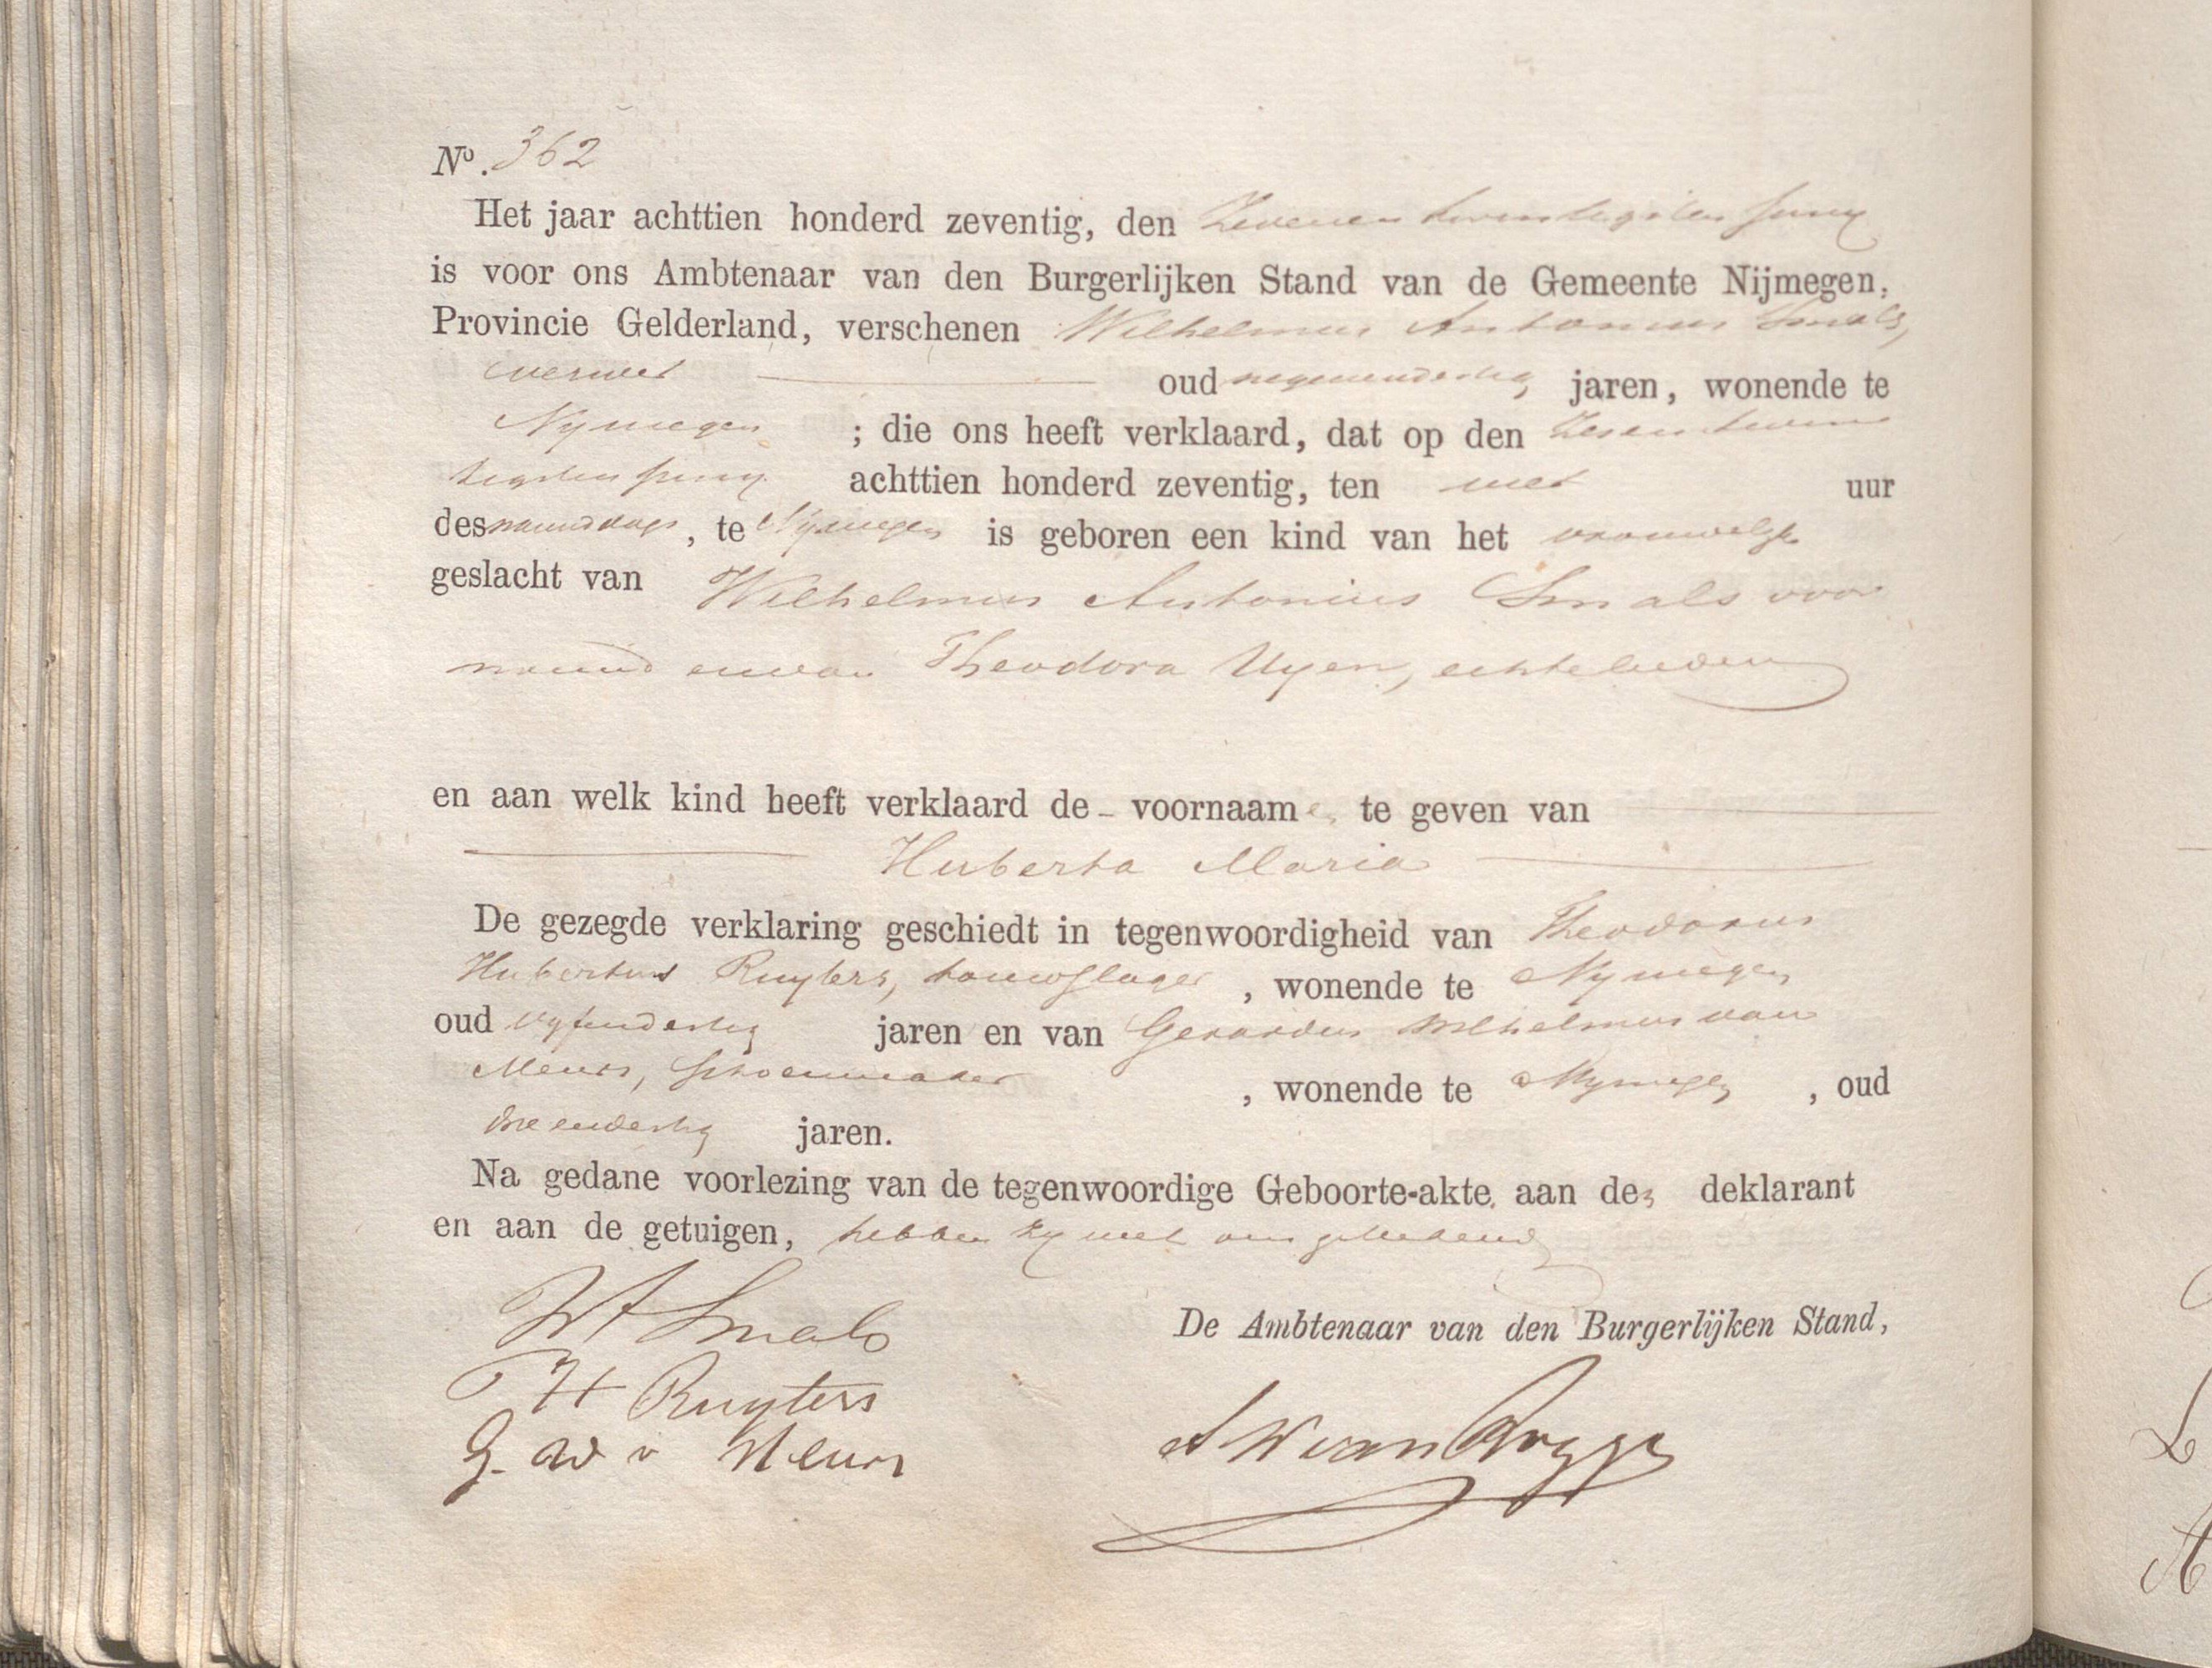 No. 362
Het jaar achttien honderd zeventig, den Zevenentwintigsten Juny
is voor ons Ambtenaar van den Burgerlijken Stand van de Gemeente Nijmegen,
Provincie Gelderland, verschenen Wilhelmus Antonius Smals,
verwer oud negenendertig jaren, wonende te
Nymegen ; die ons heeft verklaard, dat op den Zesentwin
tigsten Juny achttien honderd zeventig, ten uur
des namiddags, te Nymegen is geboren een kind van het vrouwelyk
geslacht van Wilhelmus Antonius Smals voor
noemd en van Theodora Uyen, echtelieden
en aan welk kind heeft verklaard de - voornaamen te geven van
Huberta Maria
De gezegde verklaring geschiedt in tegenwoordigheid van Theodorus
Hubertus Ruyters, touwslager, wonende te Nymegen
oud vyfendertig jaren en van Gerardus Wilhelmus van
Meurs, Schoenmaker, wonende te Nymegen, oud
drieendertig jaren.
Na gedane voorlezing van de tegenwoordige Geboorte-akte, aan den deklarant
en aan de getuigen, hebben zy met ons geteekend
W A Smals
De Ambtenaar van den Burgerlijken Stand,
T H Ruyters
G. W v Meurs